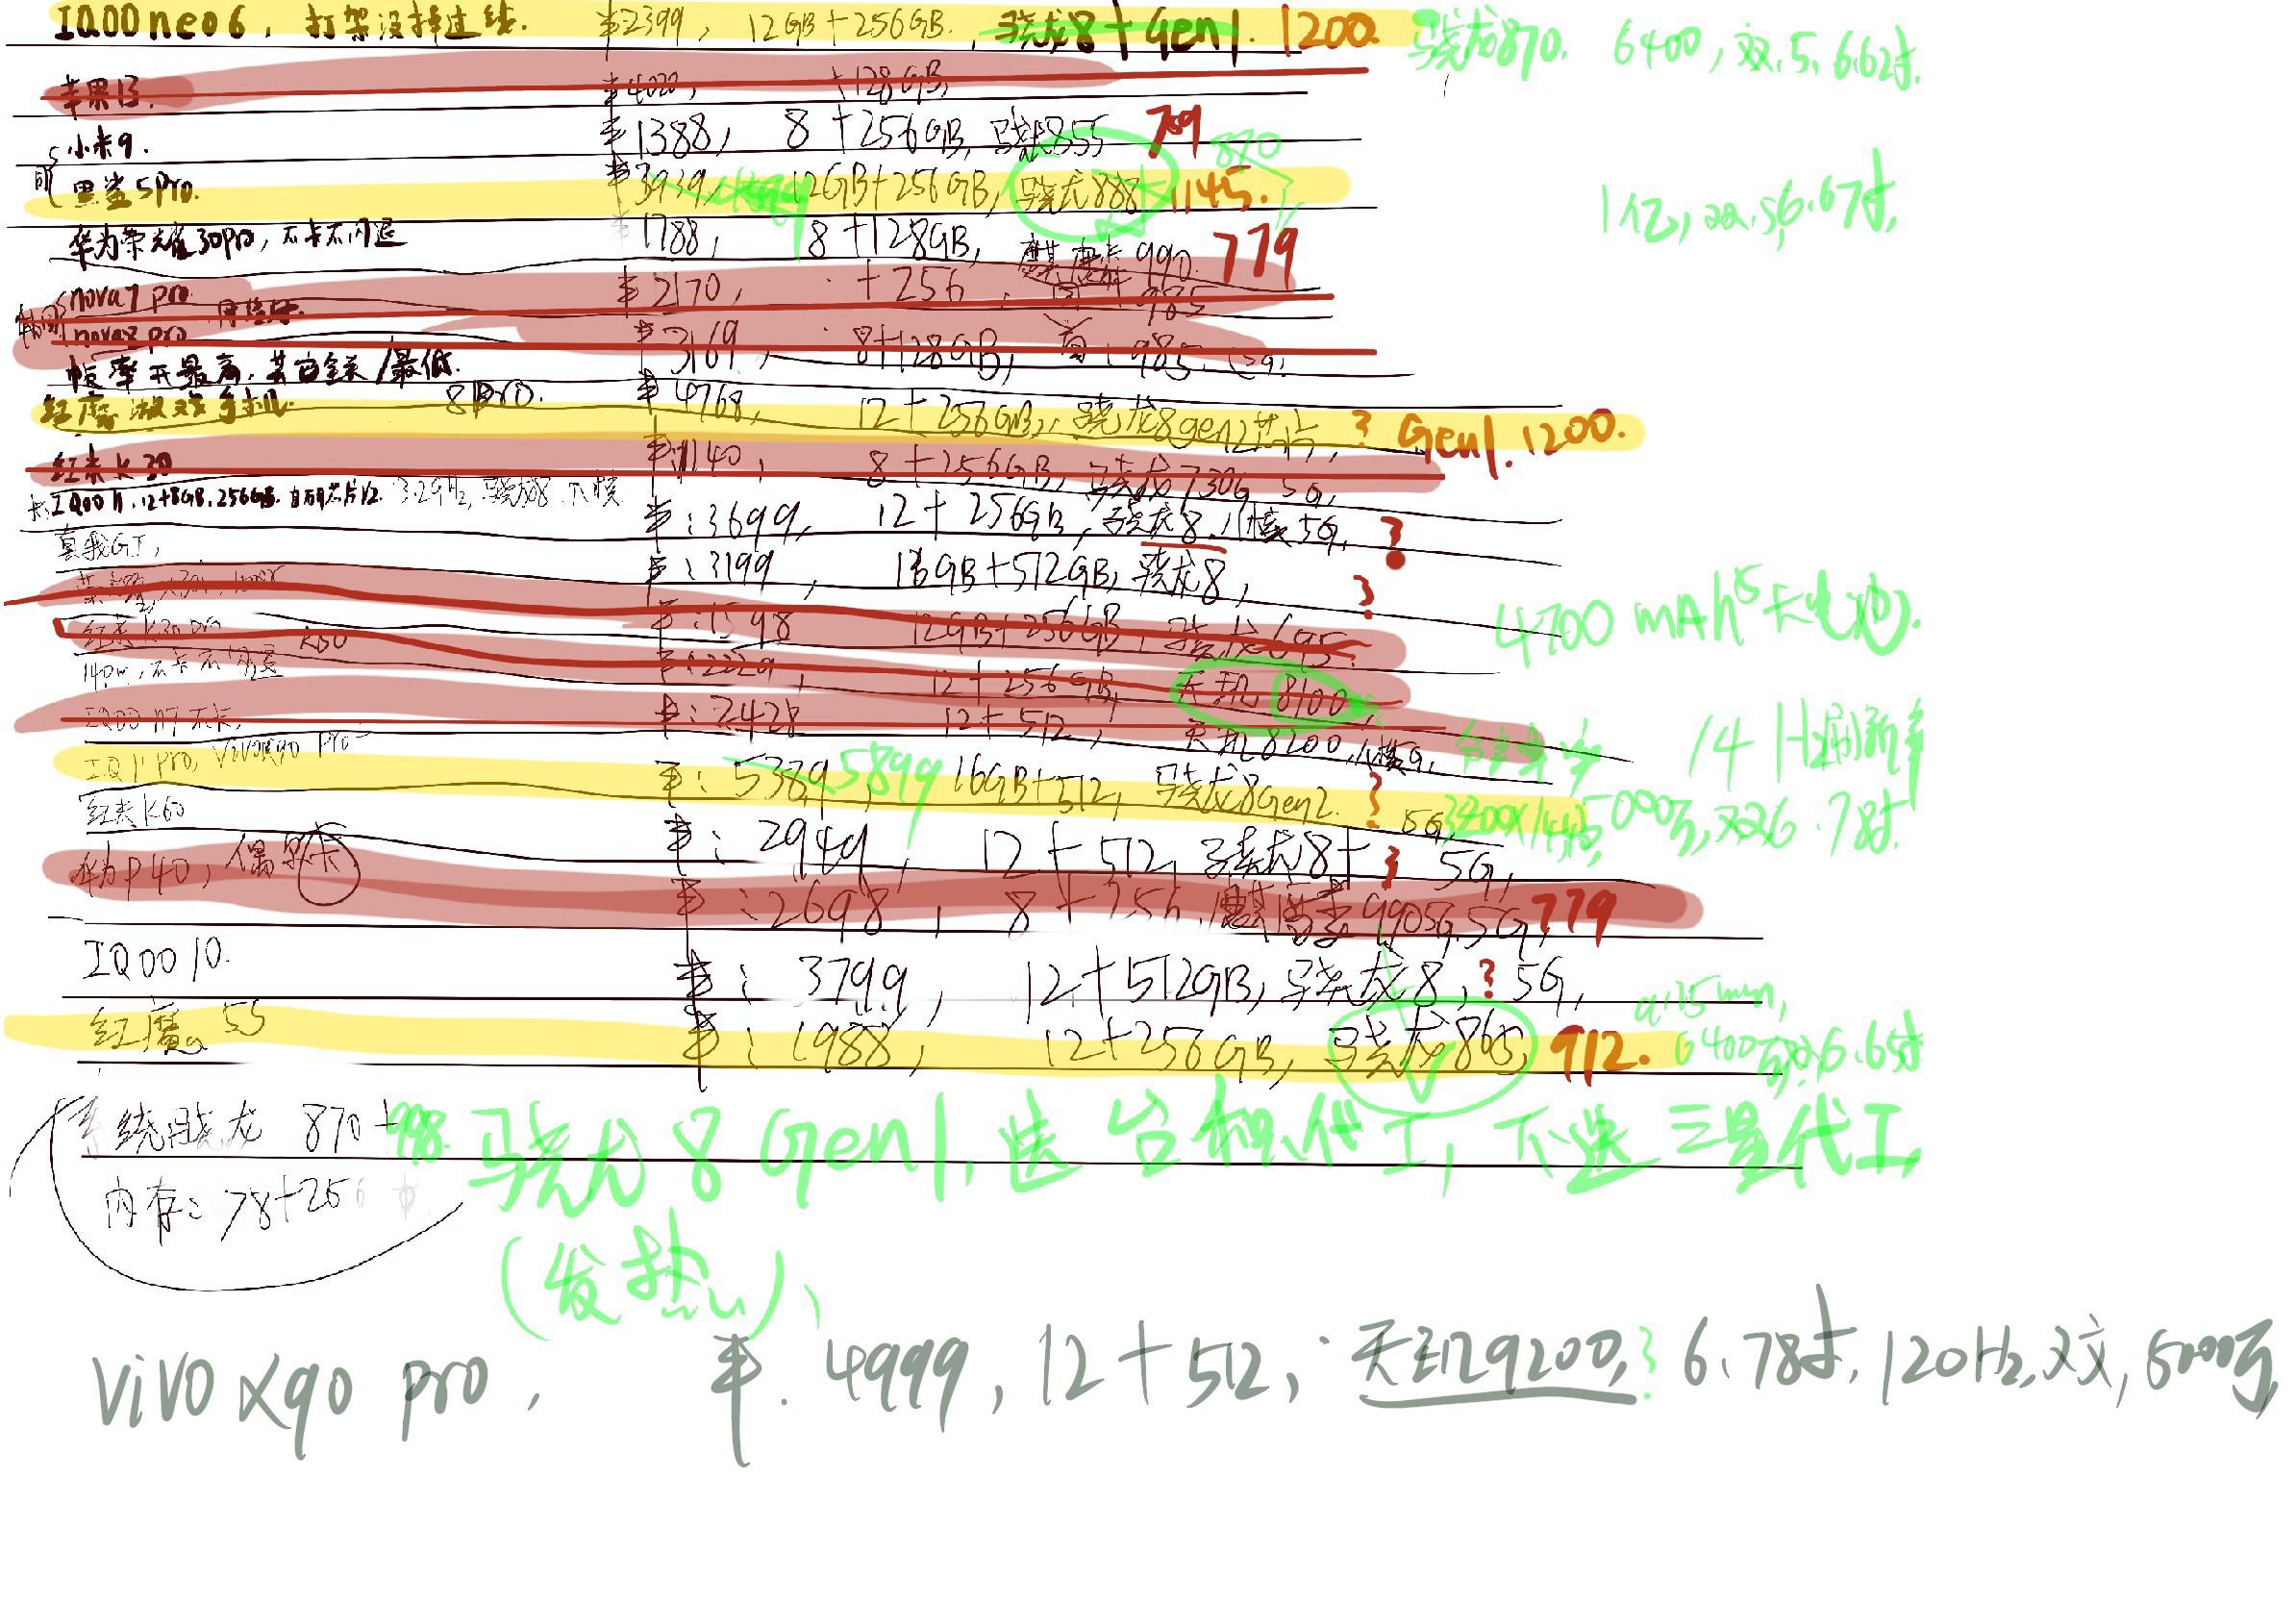 IQOO neo6, 打架没掉过线. ¥2399, 12GB+256GB, 骁龙8+Gen1. 1200. 骁龙870. 6400, 双, 5, 6.62寸.
苹果13. ¥4020, +128GB,
小米9. ¥1388, 8+256GB, 骁龙855 769
黑鲨5Pro. ¥3939, 12GB+256GB, 骁龙888 1145. 870
1亿, 6.67寸,
华为荣耀30pro, 不卡不闪退 ¥1788, 8+128GB, 麒麟990. 779
nova7 pro. ¥2170, +256, 985
nova8 pro ¥3169, 8+128GB, 985, 5G.
帧率开最高, 其它全关/最低.
红魔游戏手机. 8pro. ¥4768, 12+256GB, 骁龙8gen2芯片, ? Gen1. 1200.
红米K30 ¥1140, 8+256GB, 骁龙730G 5G,
IQOO 11, 12+8GB. 256GB. 自研芯片V2. 3.2GHz, 骁龙8 八核 ¥:3699, 12+256GB, 骁龙8, 八核 5G, ?
真我GT, ¥:3199, 16GB+512GB, 骁龙8, ?
¥:1598 12GB+256GB, 骁龙695.
4700 mAh 电池.
红米K30 pro K50 ¥:2229, 12+256GB, 天玑8100,
14pm, 不卡不闪退
IQOO n7 不卡, ¥:2428 12+512, 天玑8200, 八核
14 Hz刷新率
IQ11 pro, vivoX90 Pro ¥:5389, 5899 16GB+512, 骁龙8Gen2. ? 5G, 5000万, 双, 6.78寸.
红米K60 ¥:2949, 12+512, 骁龙8+ ? 5G,
华为P40, 偶尔卡 ¥:2698, 8+256, 麒麟9905G, 5G, 779
IQOO 10. ¥: 3799, 12+512GB, 骁龙8, ? 5G,
红魔 5S ¥:1988, 12+256GB, 骁龙865, 912. 6400万, 6.65寸
系统骁龙 870+
998.
骁龙8 Gen1, 选台积代工, 不选三星代工,
内存: 78+256
(发热),
vivo X90 pro, ¥. 4999, 12+512, 天玑9200, ? 6.78寸, 120Hz, 双, 5000万,